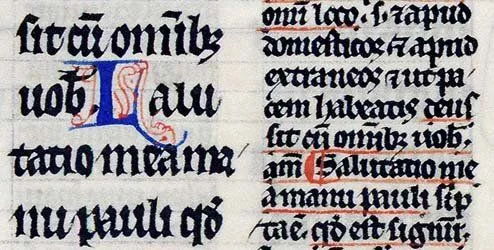 sit cū omībꝫ
uob. Salu
tatio mea ma
nu pauli qd̄
omī loco. s. ⁊ apud
domesticos ⁊ apud
extraneos ⁊ ut pa
cem habeatis deus
sit cū omībꝫ uob.
am̄ Salutatio me
a manu pauli sc̄ip
taē. qd̄ est signū.